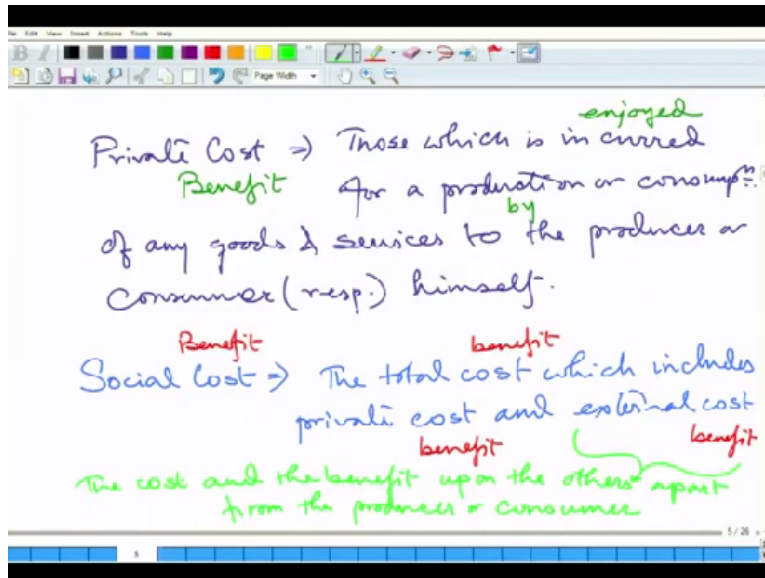 File Edit View Insert Actions Tools Help
B I
Page Width
enjoyed
Private Cost ⇒ Those which is incurred
Benefit for a production or consumpⁿ.
by
of any goods & services to the producer or
consumer (resp.) himself.
Benefit benefit
Social Cost ⇒ The total cost which includes
private cost and external cost
benefit benefit
The cost and the benefit upon the others apart
from the producer or consumer
5 / 26
5